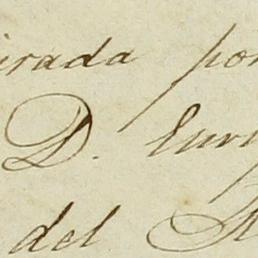 irada por
D. Enri
del